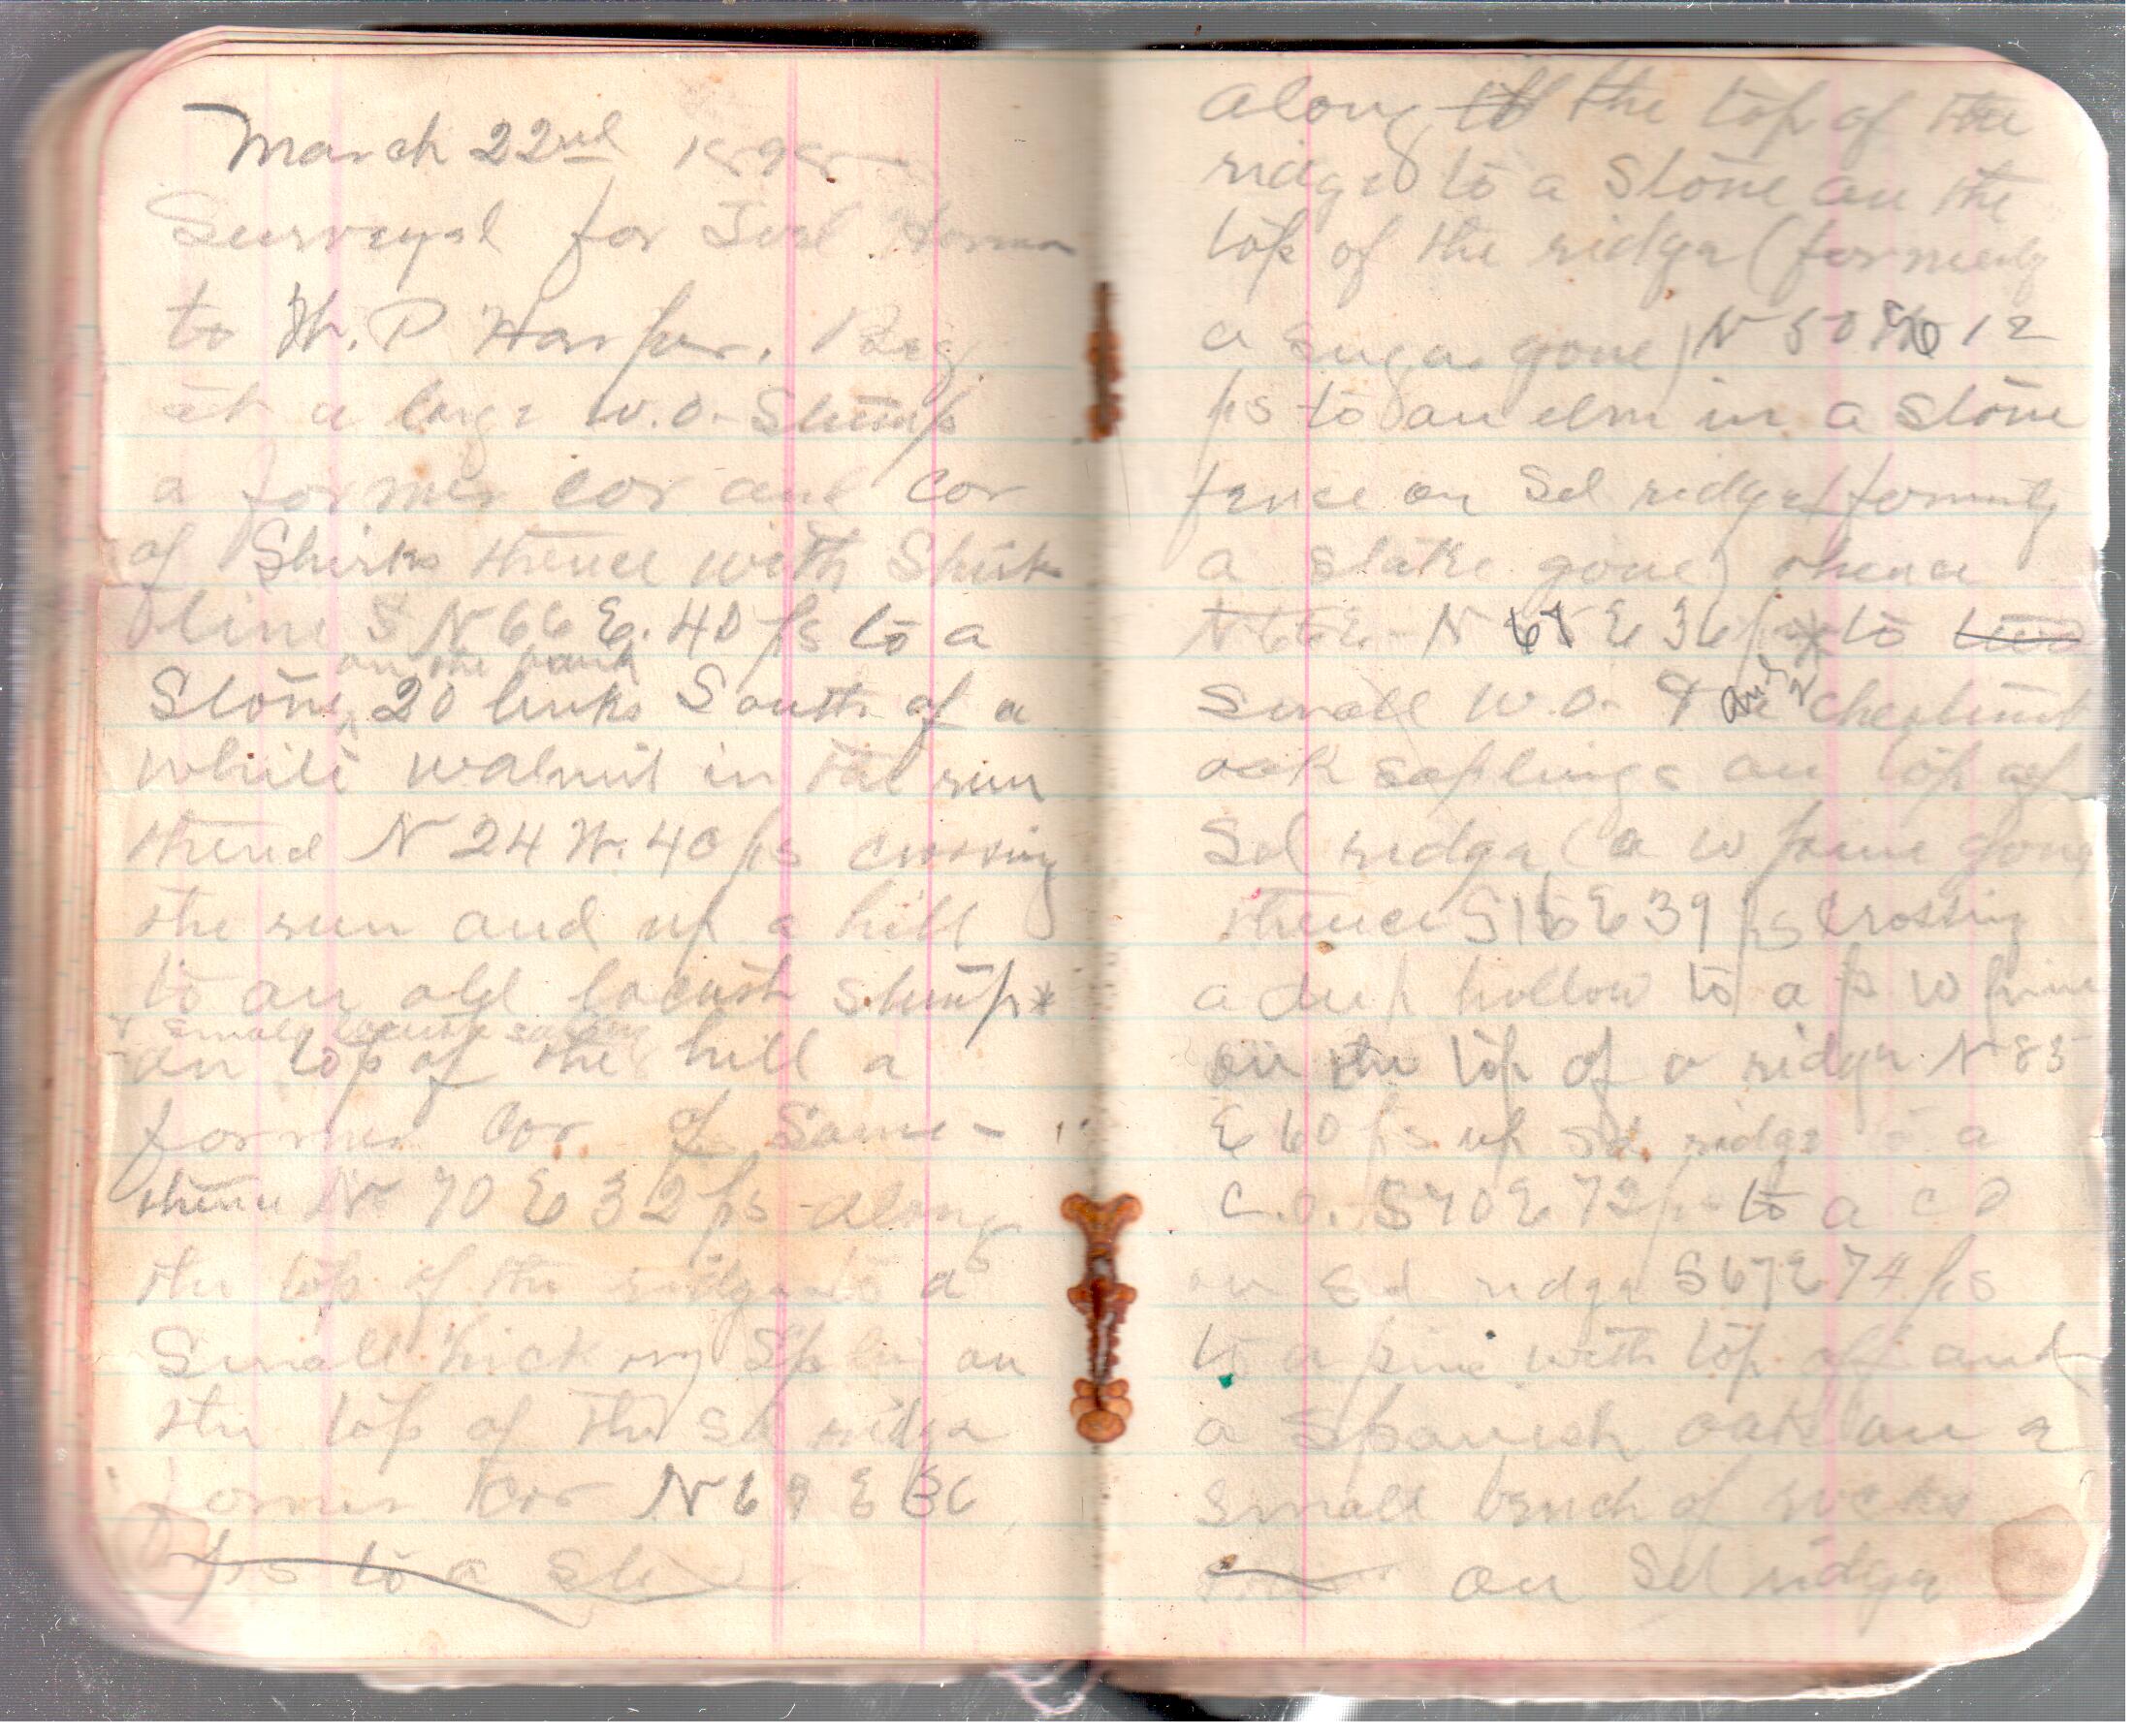 March 22nd 1898
Surveyed for Joel
to W. P. Harper. Beg
at a large W.O. Stump
a former cor and cor
of Shirks thence with Shirks
line S N 66 E. 40 ps to a
on the bank
Stone 20 links South of a
white walnut in the run
thence N 24 W. 40 ps crossing
the run and up a hill
to an old locust stump *
& small locust
on top of the hill a
former cor of Same -
thence N 70 E 32 ps - along
the top of the ridge to a
Small hickory on
the top of the sd ridge
former cor N 69 E 36
ps to a
along the top of the
ridge to a Stone on the
top of the ridge (formerly
a sugar gone) N 50 12
ps to an elm in a stone
fence on Sd ridge (formerly
a stake gone) thence
N 66 E - N E 36 to
Small W.O. & and 2 chestnut
oak saplings on top of
Sd ridge (a w pine gone
thence S 16 E 39 ps crossing
a deep hollow to a w pine
on the top of a ridge N 85
E 60 ps up sd ridge to a
C.O. S 70 E 72 ps to a C O
on Sd ridge S 67 E 74 ps
to a pine with top off and
a Spanish oak on a
small bench of rocks
on Sd ridge